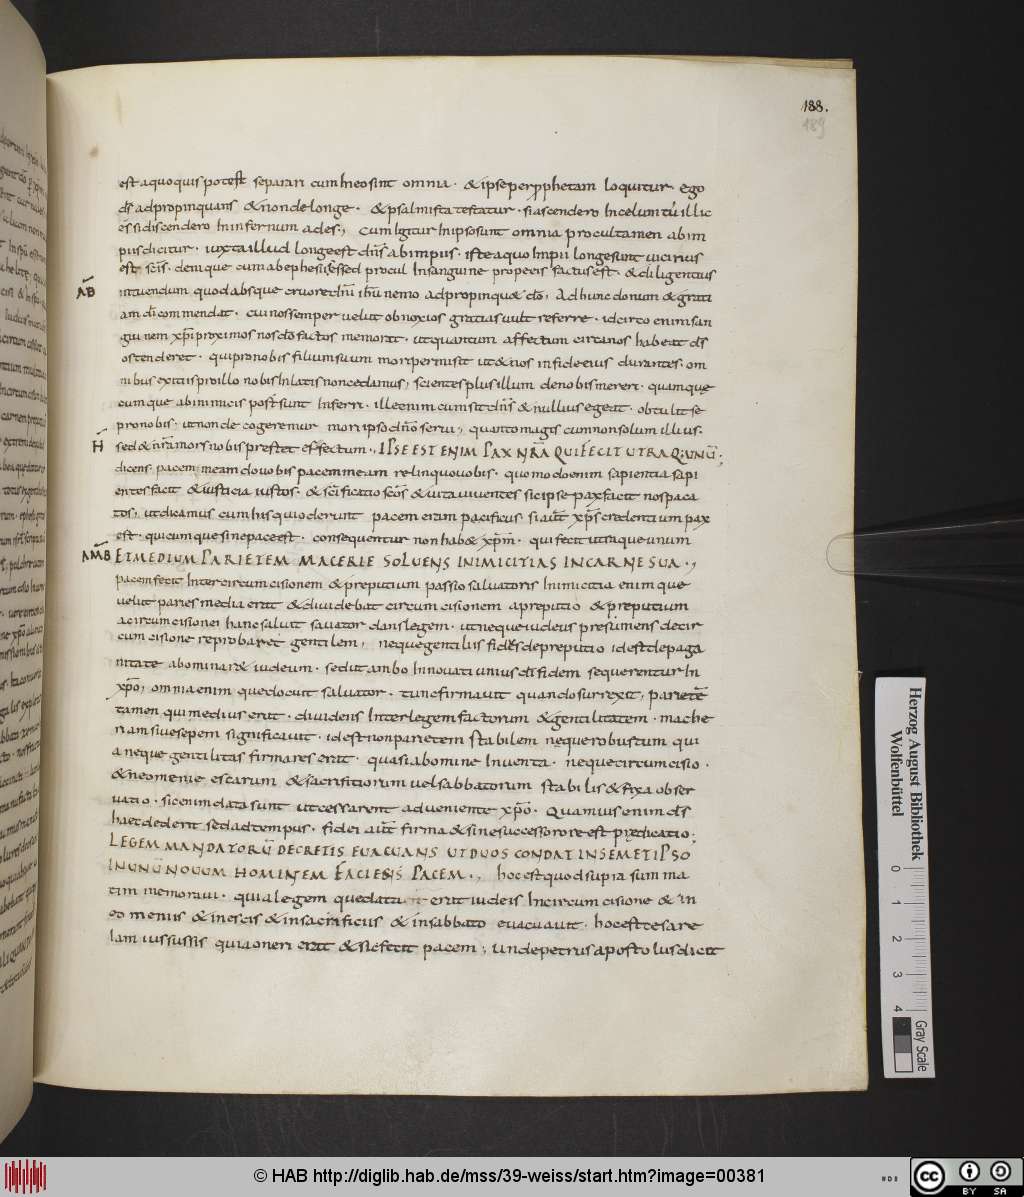 188.
189
est a quo quis potest separari cum in eo sint omnia · & ipse per pphetam loquitur ego
ds adpropinquans & non de longe · & psalmista testatur · si ascendero in celum tu illic
es si discendero in infernum ades ; cum igitur in ipso sunt omnia procul tamen ab im
piis dicitur · iuxta illud longe est dns ab impiis · iste a quo impii longe sunt uicinus
est scis · denique cum ab ephesiis esset procul in sanguine properis factus est · & diligentius
AB
intuendum quod absque cruore dni ihu nemo adpropinqu& do ; Ad hunc donum & grati
am di commendat · cui nos semper uelut obnoxios gratias uult referre · idcirco enim san
guinem xpi proximos nos do factos memorat · ut quantum affectum circa nos habeat ds
ostenderet · qui pro nobis filium suum mori permisit ut & nos in fide eius durantes · om
nibus exitiis pro illo nobis inlatis non cedamus ; scientes plus illum de nobis mereri · quamque
cumque ab inimicis possunt inferri · ille enim cum sit dns & nullius egeat · obtulit se
pro nobis · ut non de cogeremur mori pso dno serui ; quanto magis cum non solum illius ·
H
sed & nra mors nobis prestet effectum · , IPSE EST ENIM PAX NRA QUI FECIT UTRAQ; UNU ;
dicens · pacem meam do uobis pacem meam relinquo uobis · quomodo enim sapientia sapi
entes facit & iustitia iustos · & scificatio scos & uita uiuentes sic ipse pax facit nos paca
tos ; ut dicamus cum his qui oderunt pacem eram pacificus si aut xps credentium pax
est · quicumque sine pace est · consequentur non hab& xpm · qui fecit utraque unum
AMB
ET MEDIUM PARIETEM MACERIE SOLUENS INIMICITIAS IN CARNE SUA · ,
pacem fecit inter circumcisionem & preputium passio saluatoris inimicitia enim que
uelut paries media erat & diuidebat circumcisionem a preputio & preputium
a circumcisionei hanc saluit sauator dans legem · ut neque iudeus presumens de cir
cumcisione reprobaret gentilem ; neque gentilis fides de preputio id est de paga
nitate abominar& iudeum · sed ut ambo innouati unius di fidem sequerentur in
xpo ; omnia enim que docuit saluator · tunc firmauit quando surrexit ; pariete
tamen qui medius erat · diuidens inter legem factorum & gentilitatem · mache
riam siue sepem significauit · id est non parietem stabilem neque robustum qui
a neque gentilitas firmares erat · quasi abomine inuenta · neque circumcisio ·
& neomenie escarum & sacrificiorum uel sabbatorum stabilis & fixa obser
uatio · sic enim data sunt ut cessarent adueniente xpo · Quamuis enim ds
haec dederit sed ad tempus · fidei aut firma & sine successorore est predicatio ;
LEGEM MANDATORU DECRETIS EUACUANS UT DUOS CONDAT IN SEMETIPSO
IN UNU NOUUM HOMINEM FACIENS PACEM · , hoc est quod supra summa
tim memoraui · quia legem que data erat iudeis in circumcisione & in
eo meniis & in escis & in sacrificiis & in sabbato euacuauit · hoc est cesare
iam iussussis quia oneri erat & sic fecit pacem ; unde petrus apostolus dicit
Herzog August Bibliothek
Wolfenbüttel
0 1 2 3 4
Gray Scale
© HAB http://diglib.hab.de/mss/39-weiss/start.htm?image=00381
cc BY SA